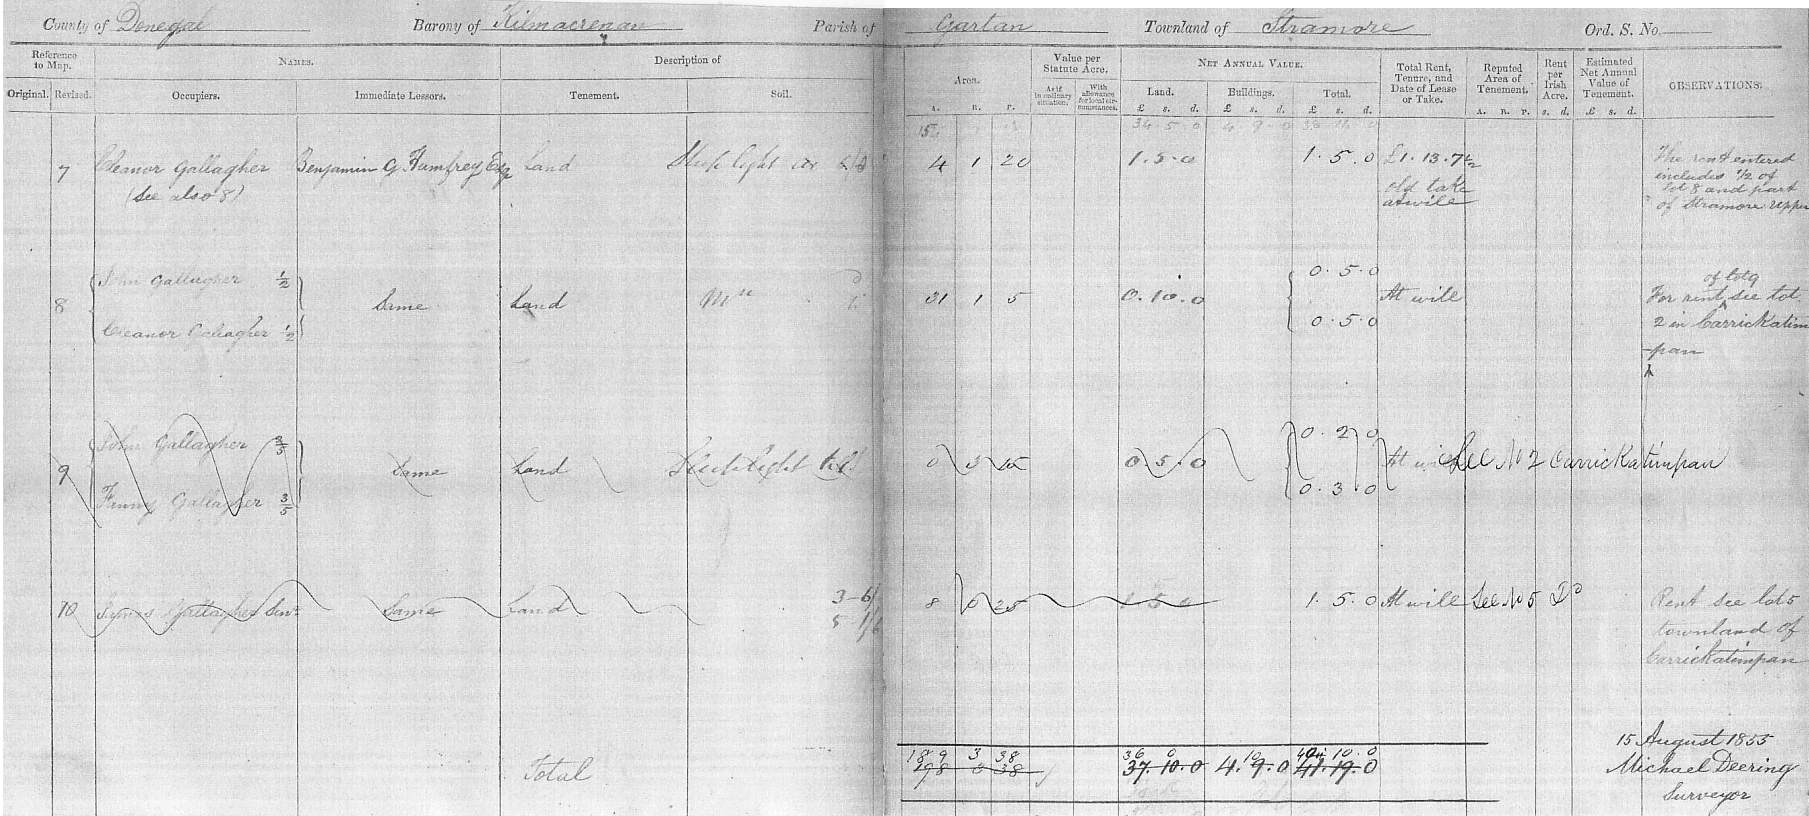 County of Donegal Barony of Kilmacrenan Parish of Gartan Townland of Stramore Ord. S. No.
Reference to Map. NAMES. Description of Area. Value per Statute Acre. NET ANNUAL VALUE. Total Rent, Tenure, and Date of Lease or Take. Reputed Area of Tenement. Rent per Irish Acre. Estimated Net Annual Value of Tenement. OBSERVATIONS.
Original. Revised. Occupiers. Immediate Lessors. Tenement. Soil. As if in ordinary situation. With allowance for local circumstances. Land. Buildings. Total.
A. R. P. £ s. d. £ s. d. £ s. d. A. R. P. s. d. £ s. d.
34 . 5 . 0 4 . 9 . 0
7 Eleanor Gallagher Benjamin G Humfrey Esq Land 4 1 20 1 . 5 . 0 1 . 5 . 0 £1 . 13 . 7½ The rent entered
(See also 8) old take includes ½ of
at will lot 8 and part
of Stramore Upper
John Gallagher ½ 0 . 5 . 0 of lot 9
8 Same Land 31 1 5 0 . 10 . 0 At will For rent see lot
Eleanor Gallagher ½ 0 . 5 . 0 2 in Carrickatim
-pan
John Gallagher 0 . 2 . 0
9 Same Land Steep light 0 3 15 0 . 5 . 0 At will See No 2 Carrickatimpan
Fanny Gallagher 3/5 0 . 3 . 0
10 Gallagher Senr Same Land 3-6/ 8 0 25 1 5 0 1 . 5 . 0 At will See No 5 Do Rent see lot 5
townland of
Carrickatimpan
15 August 1855
189 3 38 36 0 10 10 . 0
Total 198 0 38 37 . 10 . 0 4 . 9 . 0 41 . 19 . 0 Michael Deering
Surveyor